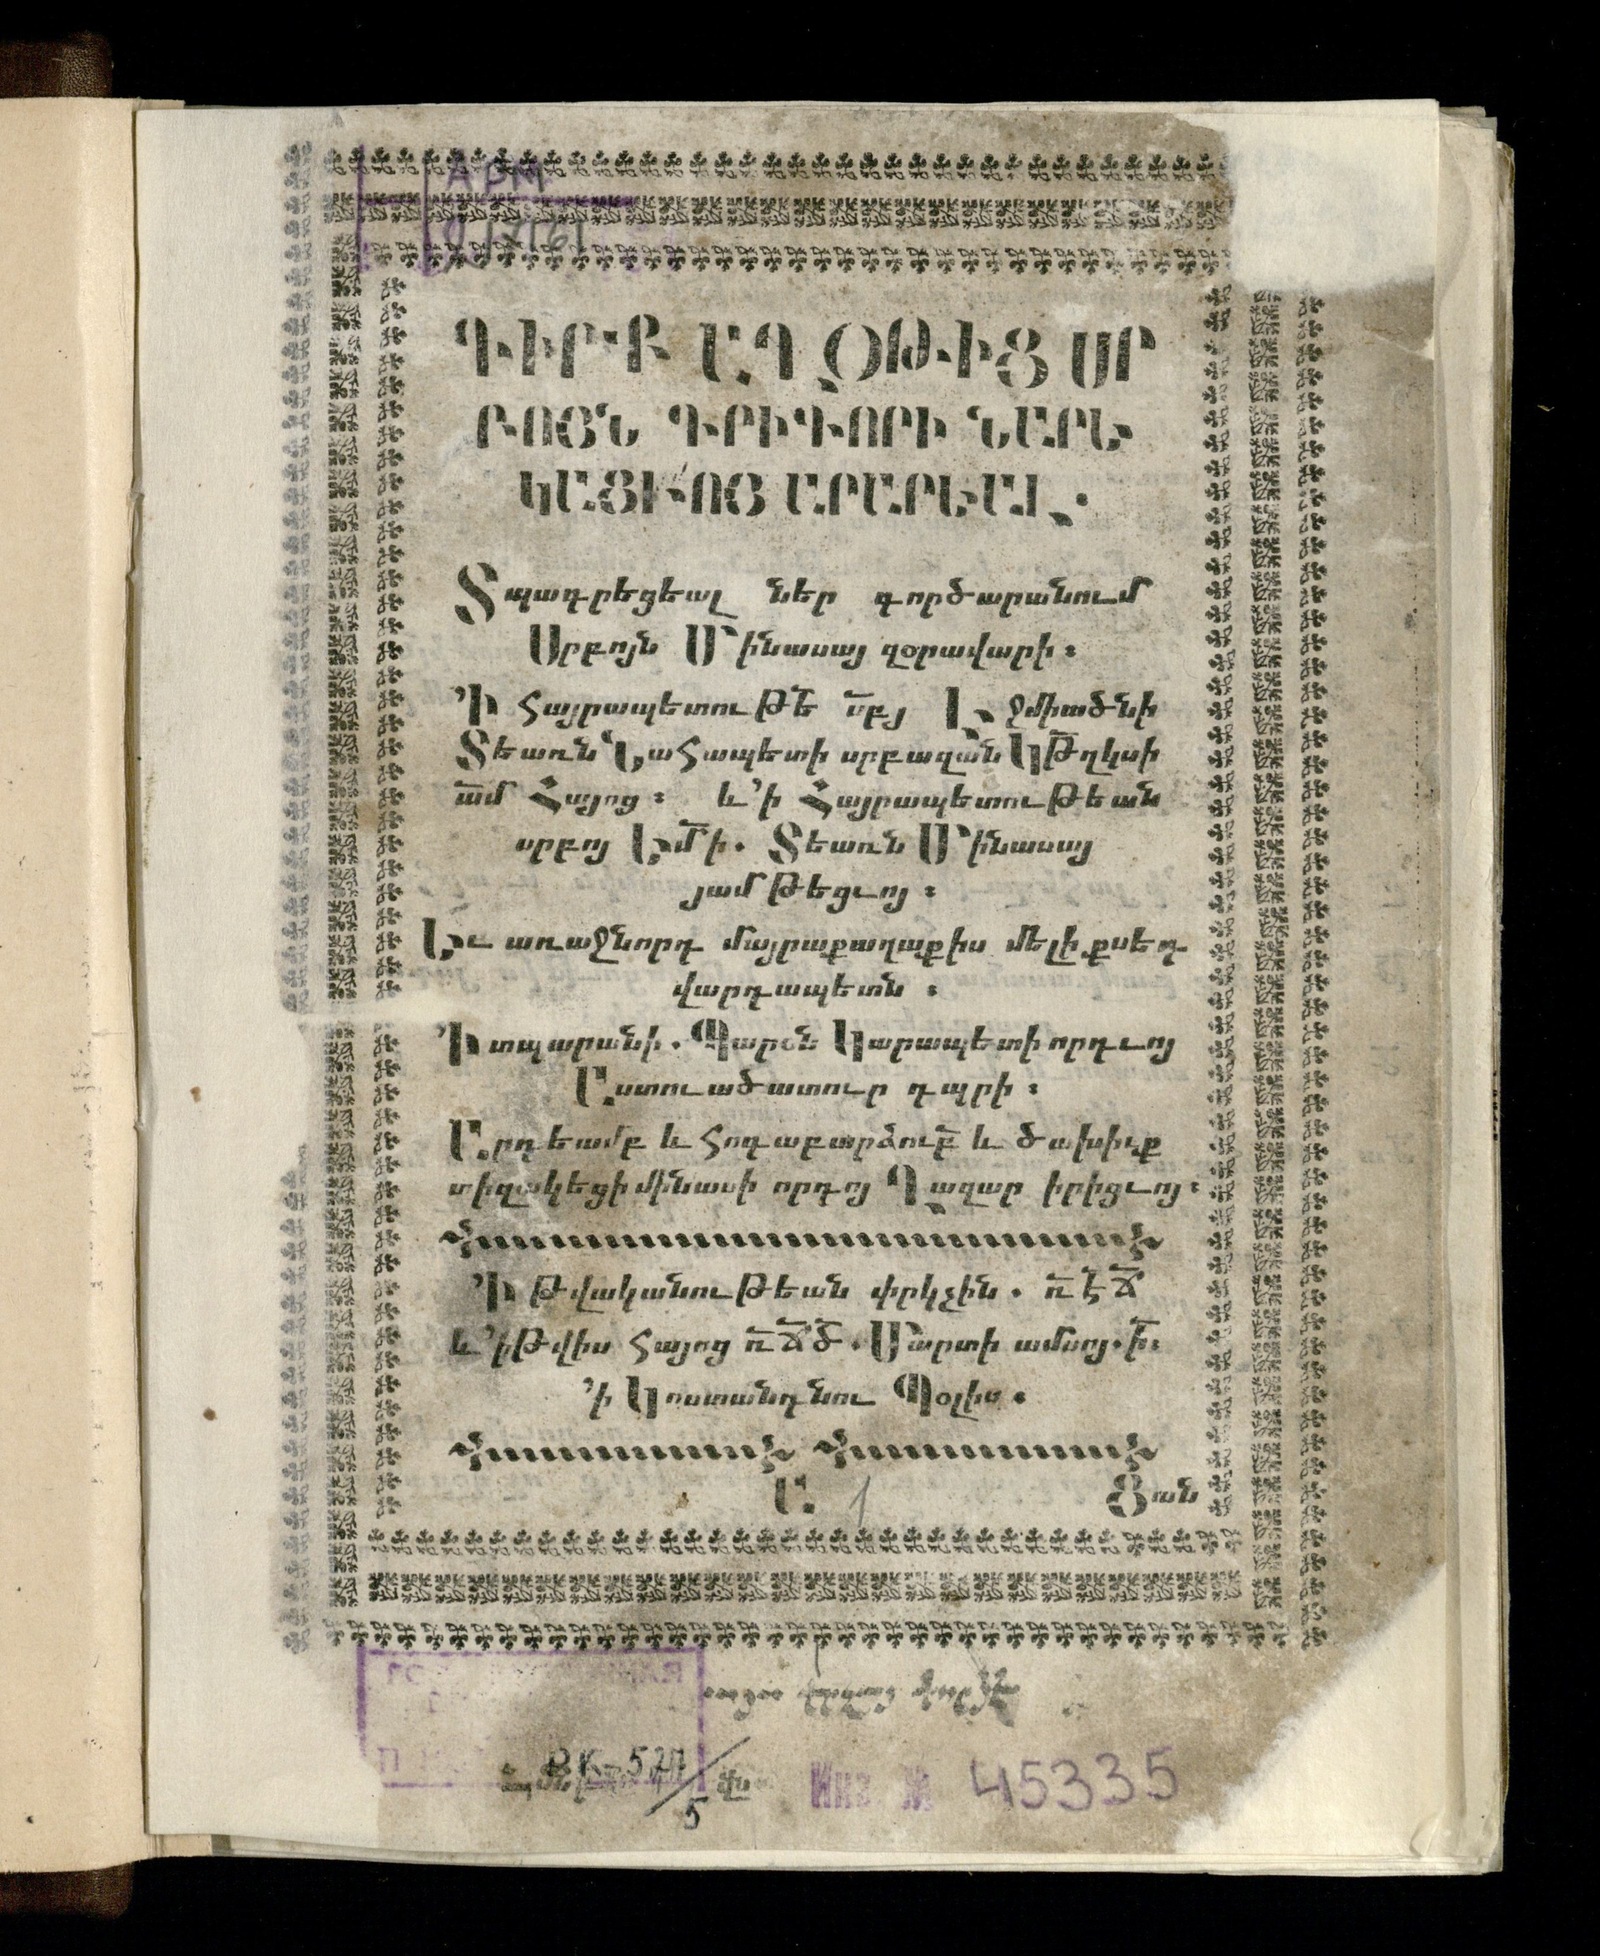 ԳԻՐՔ ԱՂՕԹԻՑ ՍՐ
ԲՈՅՆ ԳՐԻԳՈՐԻ ՆԱՐԵ
ԿԱՑՒՈՅ ԱՐԱՐԵԱԼ.
Տպագրեցեալ ներ գործարանում
Սրբոյն Մինասայ զօրավարի։
Ի Հայրապետութե՟ ս՟բյ Էջմիածնի
Տեառն Նահապետի սրբազան Կթ՟ղկսի
ա՟մ Հայոց։ և՚ի Հայրապետութեան
սրբոյ Ե՟մի. Տեառն Մինասայ
յամթեցւոյ։
Եւ առաջնորդ մայրաքաղաքիս մելիքսեդ
վարդապետն։
Ի տպարանի. Պարօն Կարապետի որդւոյ
Աստուածատուր դպրի։
Արդեամբ և հոգաբարձուբ՟ և ծախիւք
տիզակեցի մինասի որդոյ Ղազար իրիցւոյ։
Ի թվականութեան փրկչին. ռ՟ է՟ ճ՟
և՚ի թվիս Հայոց ռ՟ ճ՟ ծ՟. Մարտի ամսոյ. ի՟։
՚ի Կոստանդնու Պօլիս.
Ա 1 Ցան
АРМ
ВК-527/5
Инв № 45335